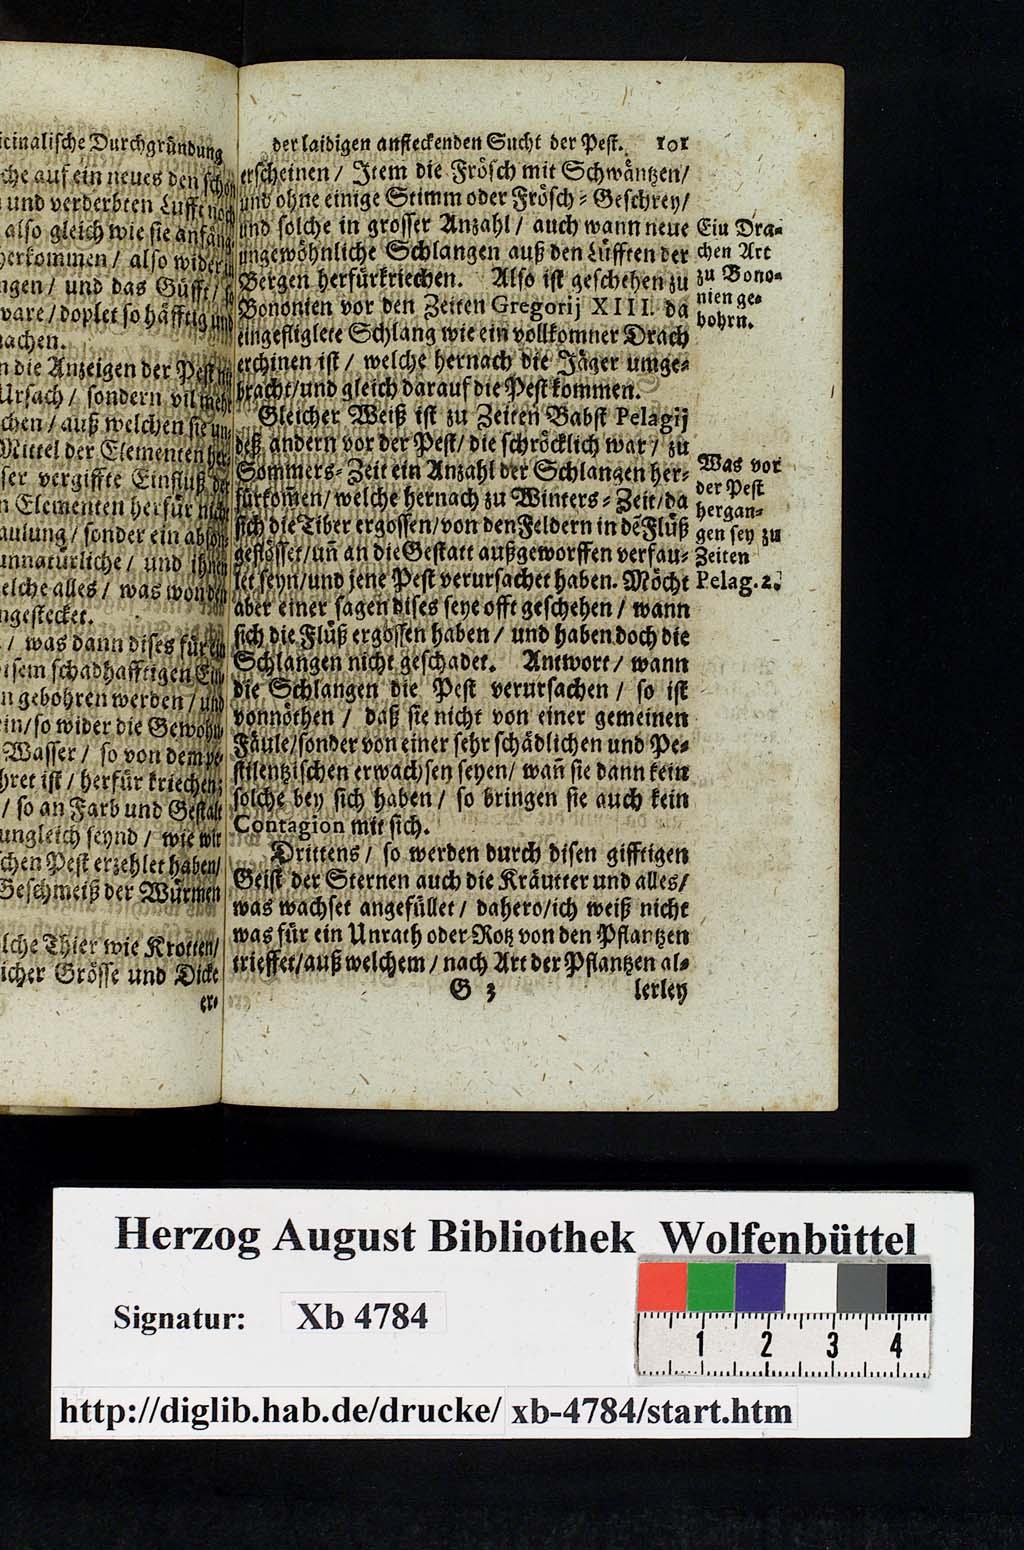 icinalische Durchgründung
che auf ein neues den schon
und verderbten Lufft noch
also gleich wie sie anfäng
herkommen / also wider
ngen / und das Güfft /
vare / doplet so häfftig und
achen.
n die Anzeigen der Pest
Ursach / sondern vil mehr
chen / auß welchen sie
Mittel der Elementen
ser vergiffte Einfluß der
n Elementen herfür
aulung / sonder ein
unnatürliche / und ihnen
elche alles / was
ngestecket.
/ was dann dises für
disem schadhafftigen
n gebohren werden / und
ein / so wider die Gewohn
Wasser / so von dem
hret ist / herfür kriechen;
/ so an Farb und Gestalt
ungleich seynd / wie wir
schen Pest erzehlet haben /
Geschmeiß der Würmen
lche Thier wie Krotten /
icher Grösse und Dicke
er-
der laidigen ansteckenden Sucht der Pest. 101
erscheinen / Item die Frösch mit Schwäntzen /
und ohne einige Stimm oder Frösch-Geschrey /
und solche in grosser Anzahl / auch wann neue
ungewöhnliche Schlangen auß den Lüfften der
Bergen herfürkriechen. Also ist geschehen zu
Bononien vor den Zeiten Gregorij XIII. da
eingefliglete Schlang wie ein vollkomner Drach
erchinen ist / welche hernach die Jäger umge-
bracht / und gleich darauf die Pest kommen.
Ein Dra-
chen Art
zu Bono-
nien ge-
bohrn.
Gleicher Weiß ist zu Zeiten Babst Pelagij
deß andern vor der Pest / die schröcklich war / zu
Sommers-Zeit ein Anzahl der Schlangen her-
fürkom̃en / welche hernach zu Winters-Zeit / da
sich die Tiber ergossen / von den Feldern in dẽ Fluß
geflösset / uñ an die Gestatt außgeworffen verfau-
let seyn / und jene Pest verursachet haben. Möcht
aber einer sagen dises seye offt geschehen / wann
sich die Flüß ergossen haben / und haben doch die
Schlangen nicht geschadet. Antwort / wann
die Schlangen die Pest verursachen / so ist
vonnöthen / daß sie nicht von einer gemeinen
Fäule / sonder von einer sehr schädlichen und Pe-
stilentzischen erwachsen seyen / wañ sie dann kein
solche bey sich haben / so bringen sie auch kein
Contagion mit sich.
Was vor
der Pest
hergan-
gen sey zu
Zeiten
Pelag. 2.
Drittens / so werden durch disen gifftigen
Geist der Sternen auch die Kräutter und alles /
was wachset angefüllet / dahero / ich weiß nicht
was für ein Unrath oder Rotz von den Pflantzen
trieffet / auß welchem / nach Art der Pflantzen al-
G 3 lerley
Herzog August Bibliothek Wolfenbüttel
Signatur: Xb 4784
1 2 3 4
http://diglib.hab.de/drucke/ xb-4784/start.htm